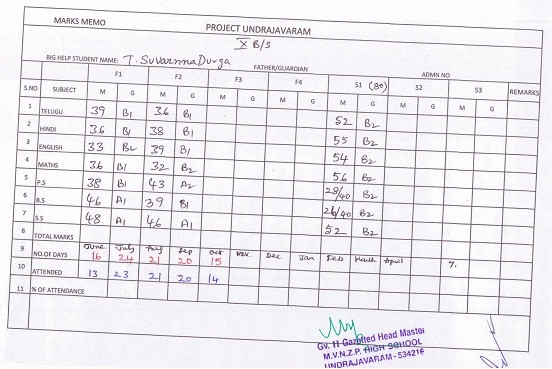 MARKS MEMO PROJECT UNDRAJAVARAM
X B/S
BIG HELP STUDENT NAME: T. SuvarnnaDurga FATHER/GUARDIAN ADMN NO
F1 F2 F3 F4 S1 (80) S2 S3
S.NO SUBJECT M G M G M G M G M G M G M G REMARKS
1 TELUGU 39 B1 36 B1 52 B2
2 HINDI 36 B1 38 B1 55 B2
3 ENGLISH 33 B2 39 B1 54 B2
4 MATHS 36 B1 32 B2 56 B2
5 P.S 38 B1 43 A2 28/40 B2
6 B.S 46 A1 39 B1 26/40 B2
7 S.S 48 A1 46 A1 52 B2
8 TOTAL MARKS
June July Aug Sep Oct Nov Dec Jan Feb March April 7.
9 NO.OF DAYS 16 24 21 20 15
10 ATTENDED 13 23 21 20 14
11 % OF ATTENDANCE
Gv. II Gazetted Head Master
M.V.N.Z.P. HIGH SCHOOL
UNDRAJAVARAM - 534216